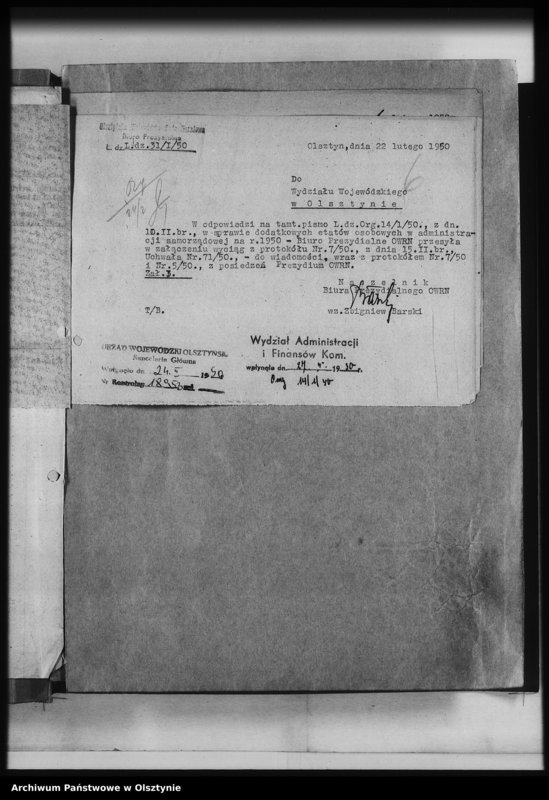 Biuro Prezydialne
L. dz. L.dz.31/I/50
Olsztyn,dnia 22 lutego 1950
Do
Wydziału Wojewódzkiego
w Olsztynie
W odpowiedzi na tamt.pismo L.dz.Org.14/1/50., z dn.
10.II.br., w sprawie dodatkowych etatów osobowych w administra-
cji samorządowej na r.1950 - Biuro Prezydialne OWRN przesyła
w załączeniu wyciąg z protokółu Nr.7/50., z dnia 15.II.br.,
Uchwała Nr.71/50., - do wiadomości, wraz z protokółem Nr.7/50
i Nr.5/50., z posiedzeń Prezydium OWRN.
Zał.3.
Naczelnik
Biura Prezydialnego OWRN
wz.Zbigniew Barski
T/B.
URZĄD WOJEWÓDZKI OLSZTYŃSKI
Kancelaria Główna
Wpłynęło dn. 24. 1950
Nr
Wydział Administracji
i Finansów Kom.
wpłynęło dn. 19 50 r.
Archiwum Państwowe w Olsztynie